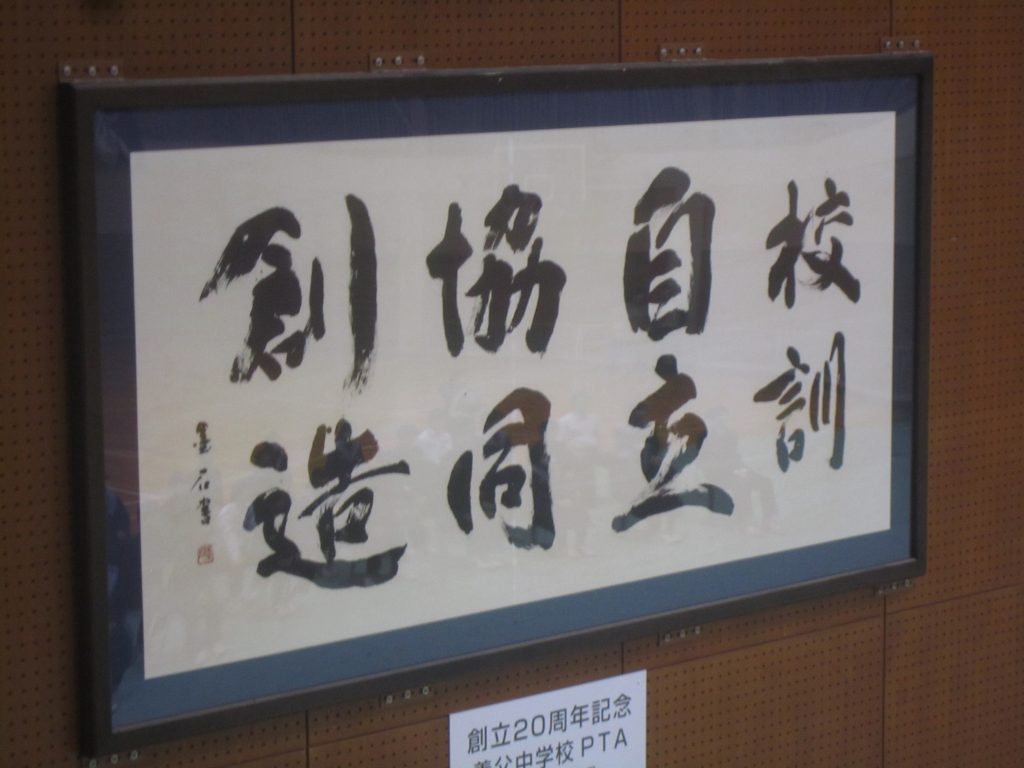 校訓
自立
協同
創造
墨石書
創立20周年記念
養父中学校PTA